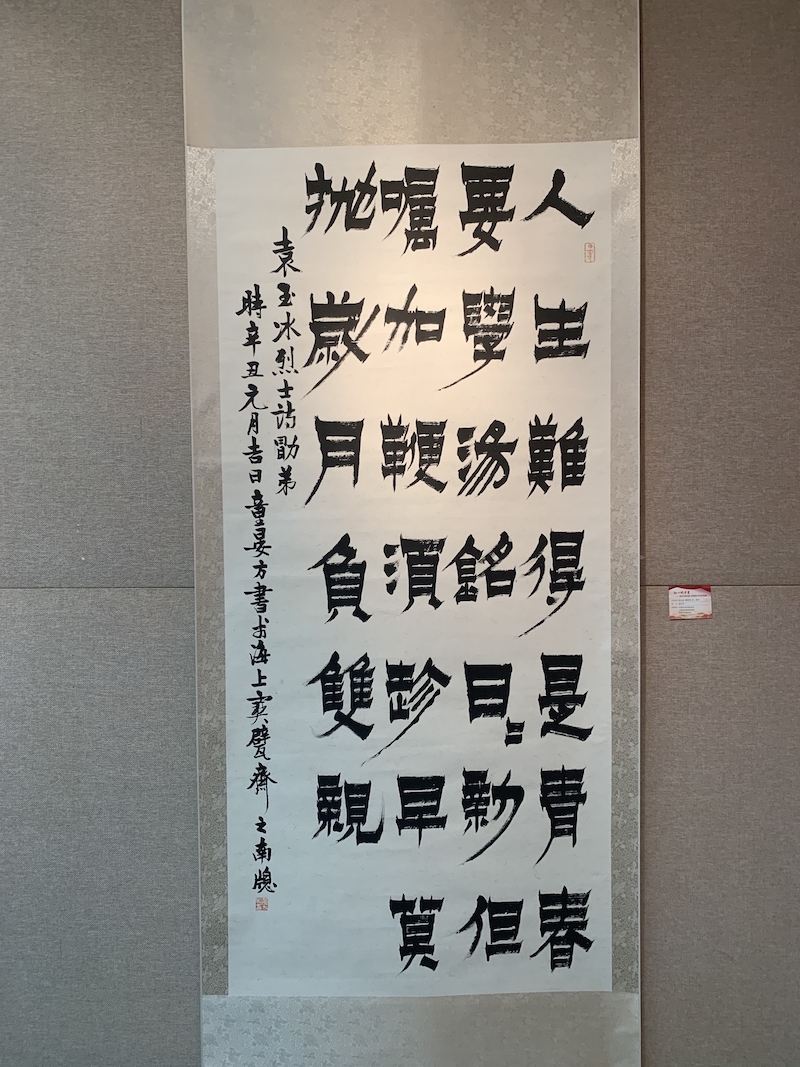 人生難得是青春
要學湯銘日〻新但
囑加鞭須趁早莫
抛歲月負雙親
袁玉冰烈士詩勖弟
時辛丑元月吉日童晏方書於海上寶甓齋之南牕